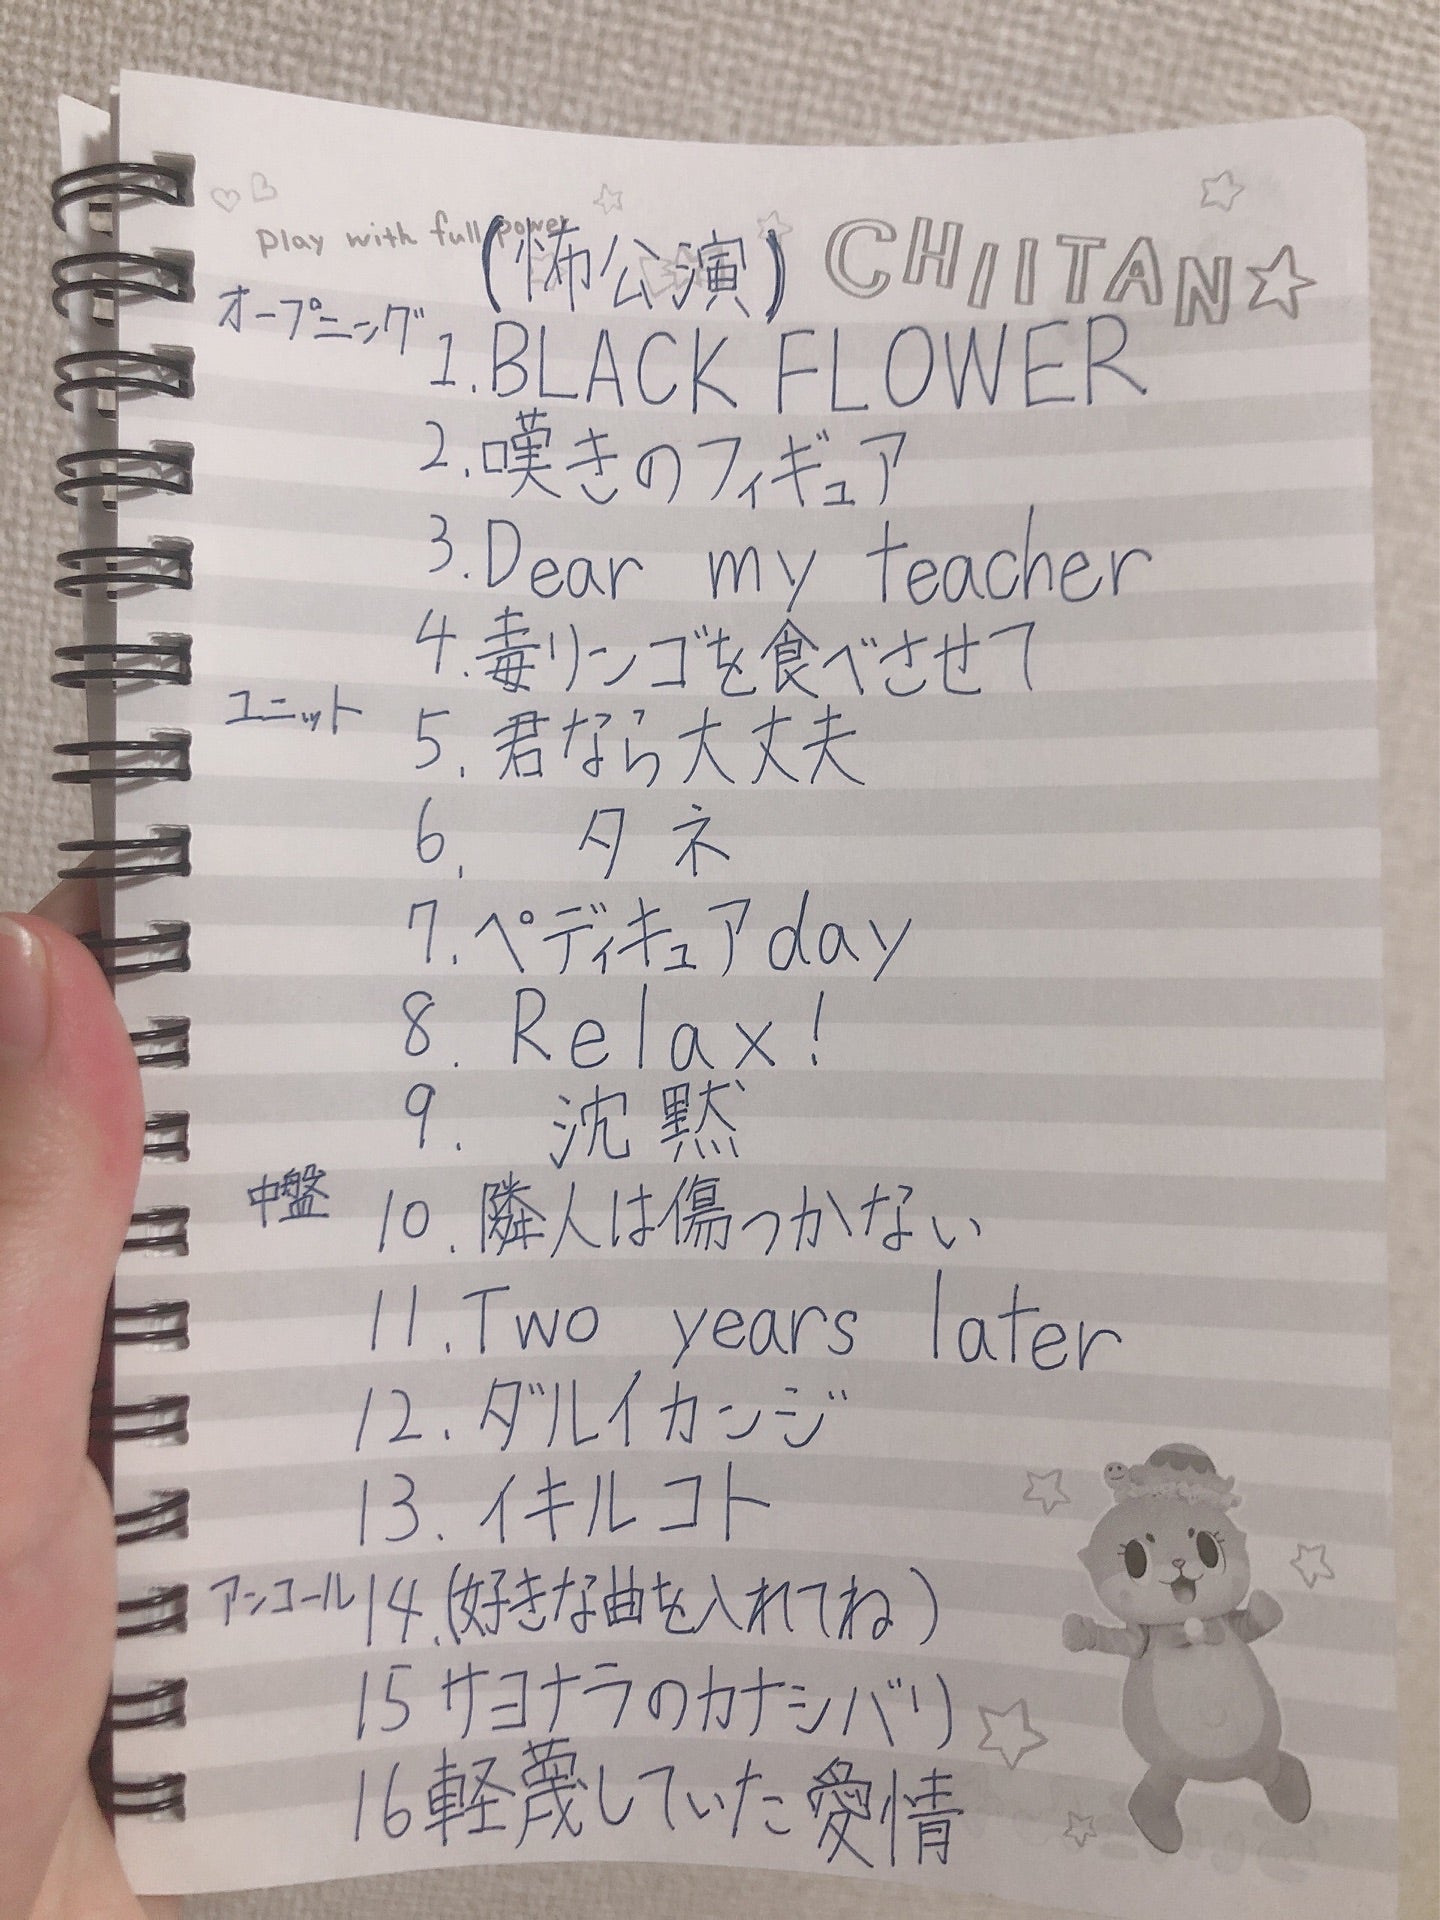 play with full power
(怖公演)
CHIITAN☆
オープニング 1. BLACK FLOWER
2. 嘆きのフィギュア
3. Dear my teacher
4. 毒リンゴを食べさせて
ユニット 5. 君なら大丈夫
6. タネ
7. ペディキュアday
8. Relax!
9. 沈黙
中盤 10. 隣人は傷つかない
11. Two years later
12. ダルイカンジ
13. イキルコト
アンコール 14. (好きな曲を入れてね)
15 サヨナラのカナシバリ
16 軽蔑していた愛情